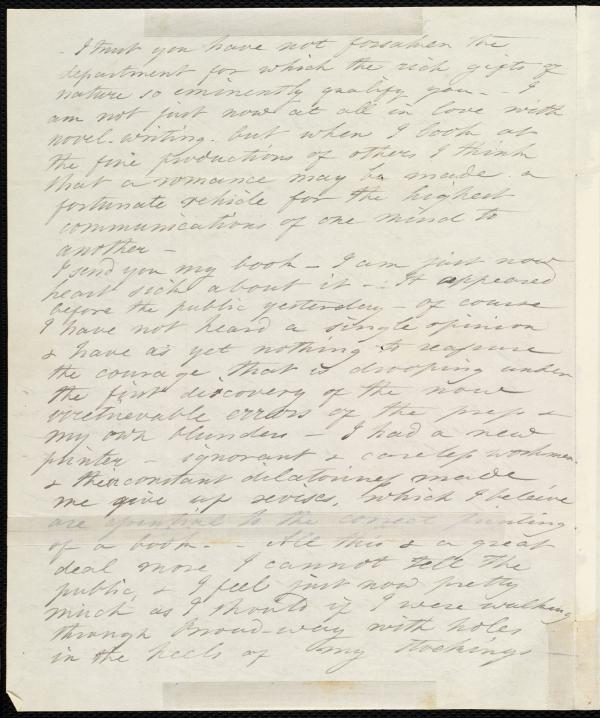 - I trust you have not forsaken the
department for which the rich gifts of
nature so eminently qualify you - - I
am not just now at all in love with
novel-writing - but when I look at
the fine productions of others I think
that a romance may be made a
fortunate vehicle for the highest
communications of one mind to
another -
I send you my book - I am just now
heart sick about it - : It appeared
before the public yesterday - of course
I have not heard a single opinion
& have as yet nothing to reassure
the courage that is drooping under
the first discovery of the now
irretrievable errors of the press &
my own blunders - I had a new
printer - ignorant & careless workmen
& their constant dilatoriness made
me give up revises, which I believe
are essential to the correct printing
of a book. - All this & a great
deal more I cannot tell the
public, & I feel just now pretty
much as I should if I were walking
through Broad-way with holes
in the heels of my stockings -